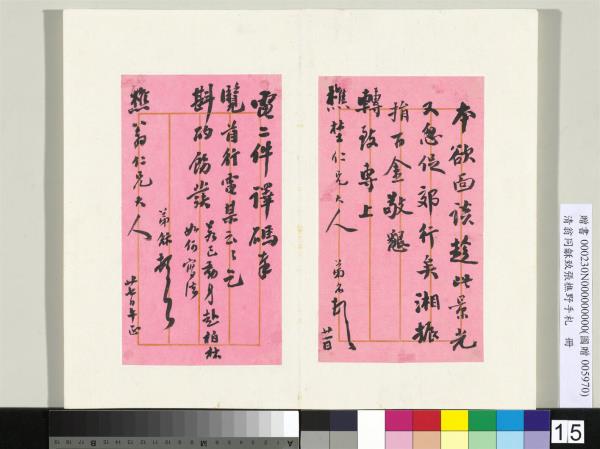 本欲面談趁此景光
又忽促郊行矣湘振
捐百金敬懇
轉致專上
樵埜仁兄大人
弟名頓
廿一日
電二件譯碼奉
覽首行電某云云乞
斟酌飭發
若已動身赴柏林
如何寫法
樵翁仁兄大人
弟龢頓
廿七日午正
贈書 000230N000000000(圖贈 005970)
清翁同龢致張樵野手札 冊
15
A
M
B